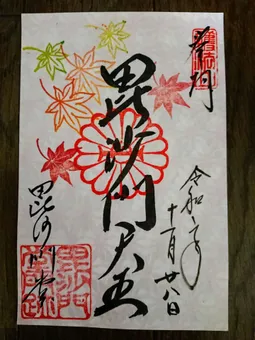 令和二年
十一月廿八日
毘沙門天王
毘沙門堂